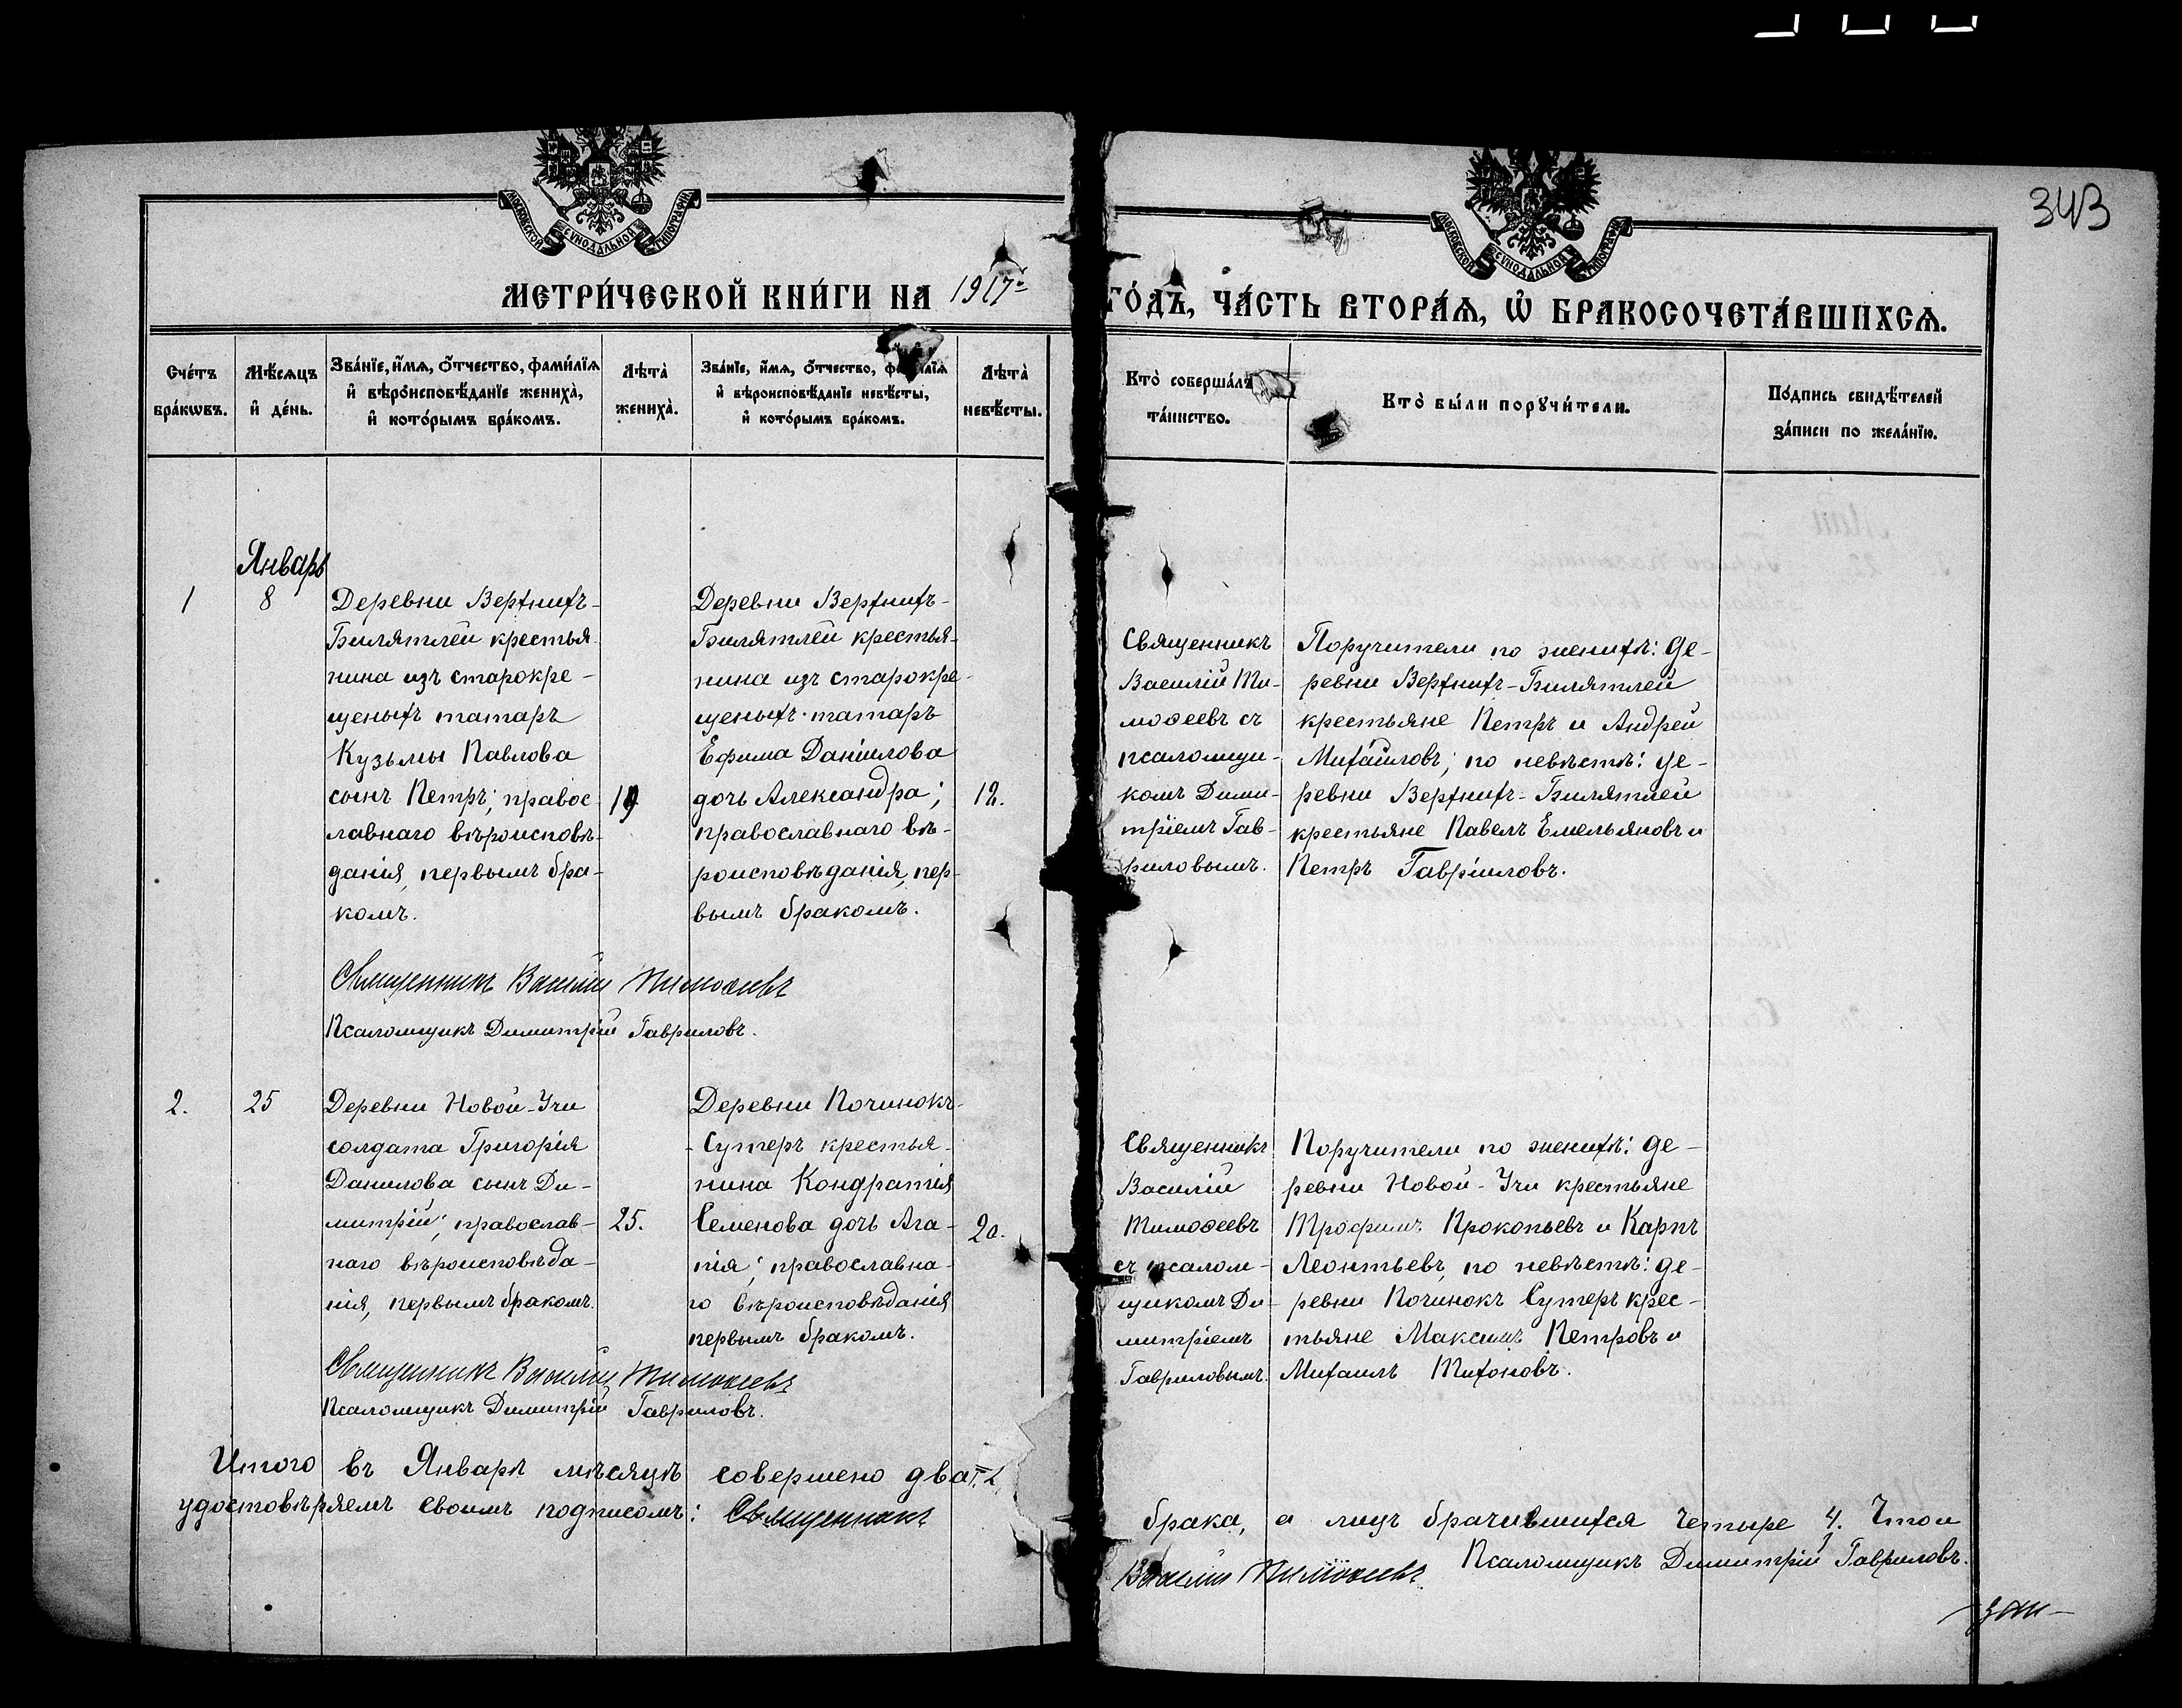 343
МОСКОВСКОЙ СѴНОДАЛЬНОЙ ТИПОГРАФІИ
МОСКОВСКОЙ СѴНОДАЛЬНОЙ ТИПОГРАФІИ
МЕТРИ́ЧЕСКОЙ КНИ́ГИ НА 1917
ГО́ДЪ, ЧА́СТЬ ВТОРА́Ѧ, Ѽ БРАКОСОЧЕТА́ВШИХСѦ.
Сче́тъ
бра́кѡвъ.
Мѣ́сѧцъ
и҆ де́нь.
Зва́нїе, и҆́мѧ, ѻ҆́тчество, фами́лїѧ
и҆ вѣроисповѣ́данїе жениха̀,
и҆ кото́рымъ бра́комъ.
Лѣта̀
жениха̀.
Зва́нїе, и҆́мѧ, ѻ҆́тчество,
и҆ вѣроисповѣ́данїе невѣ́сты,
и҆ кото́рымъ бра́комъ.
Лѣта̀
невѣ́сты.
Кто̀ соверша́лъ
та́инство.
Кто̀ бы́ли порꙋчи́тели.
По́дпись свидѣ́телей
за́писи по жела́нїю.
Январь
1
8
Деревни Верхнихъ-
Билятлей крестья
нина изъ старокре-
щеныхъ татаръ
Кузьмы Павлова
сынъ Петръ; правос
лавнаго вѣроисповѣ-
данія, первымъ бра-
комъ.
19
Деревни Верхнихъ-
Билятлей крестья-
нина изъ старокре-
щеныхъ татаръ
Ефима Даніилова
дочь Александра;
православнаго вѣ-
роисповѣданія, пер-
вымъ бракомъ.
18.
Священникъ
Василій Ти-
моѳеевъ съ
псаломщи-
комъ Дими-
тріемъ Гав-
риловымъ.
Поручители по женихѣ: де-
ревни Верхнихъ-Билятлей
крестьяне Петръ и Андрей
Михайловъ; по невѣстѣ: де-
ревни Верхнихъ-Билятлей
крестьяне Павелъ Емельяновъ и
Петръ Гавріиловъ.
Священникъ Василій Тимоѳеевъ
Псаломщикъ Димитрій Гавриловъ.
2.
25
Деревни Новой-Учи
солдата Григорія
Данилова сынъ Ди-
митрій; православ-
наго вѣроисповѣда-
нія, первымъ бракомъ.
25.
Деревни Починокъ-
-Сутеръ крестья-
нина Кондратія
Семенова дочь Ага-
пія; православна-
го вѣроисповѣданія
первымъ бракомъ.
20.
Священникъ
Василій
Тимоѳеевъ
съ псалом-
щикомъ Ди-
митріемъ
Гавриловымъ.
Поручители по женихѣ: де-
ревни Новой-Учи крестьяне
Трофимъ Прокопьевъ и Карпъ
Леонтьевъ, по невѣстѣ: де-
ревни Починокъ Сутеръ крес-
тьяне Максимъ Петровъ и
Михаилъ Тихоновъ.
Священникъ Василій Тимоѳеевъ
Псаломщикъ Димитрій Гавриловъ.
Итого въ Январѣ мѣсяцѣ совершено два
брака, а лицъ брачившихся четыре 4. Что и
удостовѣряемъ своимъ подписомъ: Священникъ
Василій Тимоѳеевъ. Псаломщикъ Димитрій Гавриловъ.